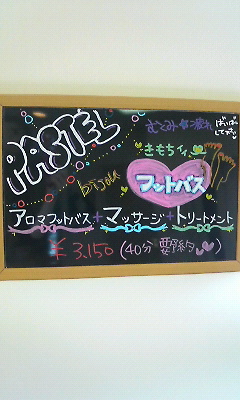 PASTEL
bijou
むくみ・疲れ
ばいばい
きもちイィ
フットバス
アロマフットバス+マッサージ+トリートメント
¥3,150 (40分 要予約)